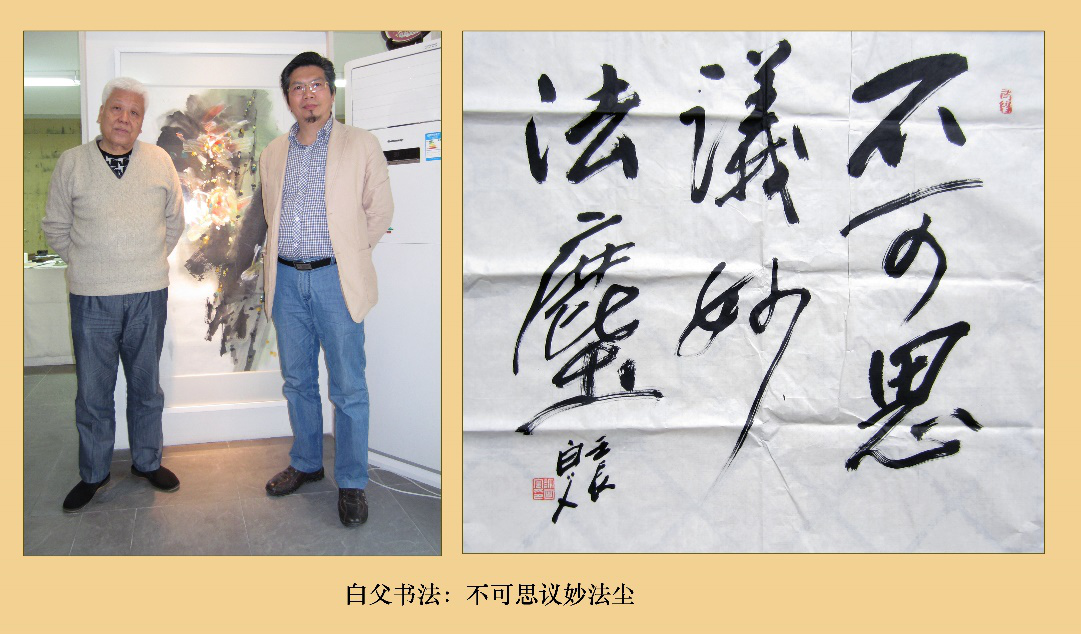 不可思
議妙
法塵
壬辰
白父
白父书法：不可思议妙法尘